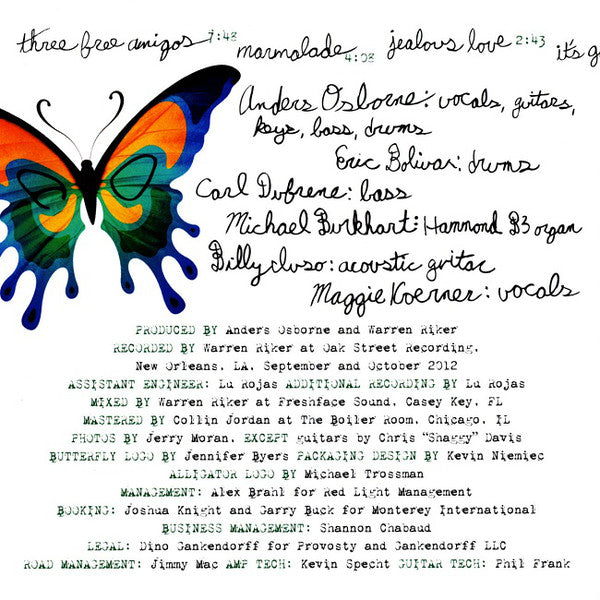 three free amigos 7:48 marmalade 4:08 jealous love 2:43 it's g
Anders Osborne: vocals, guitars,
keys, bass, drums
Eric Bolivar: drums
Carl Dufrene: bass
Michael Burkhart: Hammond B3 organ
Billy Iuso: acoustic guitar
Maggie Koerner: vocals
PRODUCED BY Anders Osborne and Warren Riker
RECORDED BY Warren Riker at Oak Street Recording,
New Orleans, LA, September and October 2012
ASSISTANT ENGINEER: Lu Rojas ADDITIONAL RECORDING BY Lu Rojas
MIXED BY Warren Riker at Freshface Sound, Casey Key, FL
MASTERED BY Collin Jordan at The Boiler Room, Chicago, IL
PHOTOS BY Jerry Moran, EXCEPT guitars by Chris “Shaggy” Davis
BUTTERFLY LOGO BY Jennifer Byers PACKAGING DESIGN BY Kevin Niemiec
ALLIGATOR LOGO BY Michael Trossman
MANAGEMENT: Alex Brahl for Red Light Management
BOOKING: Joshua Knight and Garry Buck for Monterey International
BUSINESS MANAGEMENT: Shannon Chabaud
LEGAL: Dino Gankendorff for Provosty and Gankendorff LLC
ROAD MANAGEMENT: Jimmy Mac AMP TECH: Kevin Specht GUITAR TECH: Phil Frank